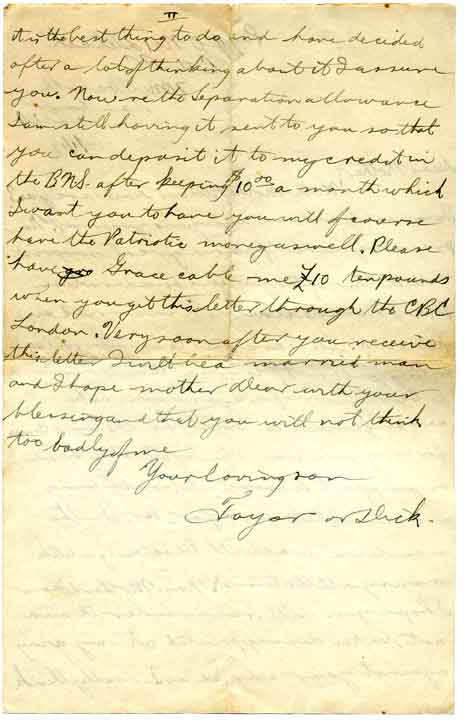 II
it is the best thing to do and have decided
after a lot of thinking about it I assure
you. Now re the Separation allowance
I am still having it sent to you so that
you can deposit it to my credit in
the BNS. after keeping $10.00 a month which
I want you to have you will of course
have the Patriotic money as well. Please
have Grace cable me £10 ten pounds
when you git this letter through the CBC
London. Very soon after you receive
this letter I will be a married man
and I hope mother dear with your
blessing and that you will not think
too badly of me
Your loving son
or Dick.